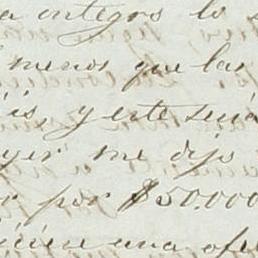 a integro lo
menos que las
is, y este seña
yer me dijo
r por $50.000
iciera una ofe